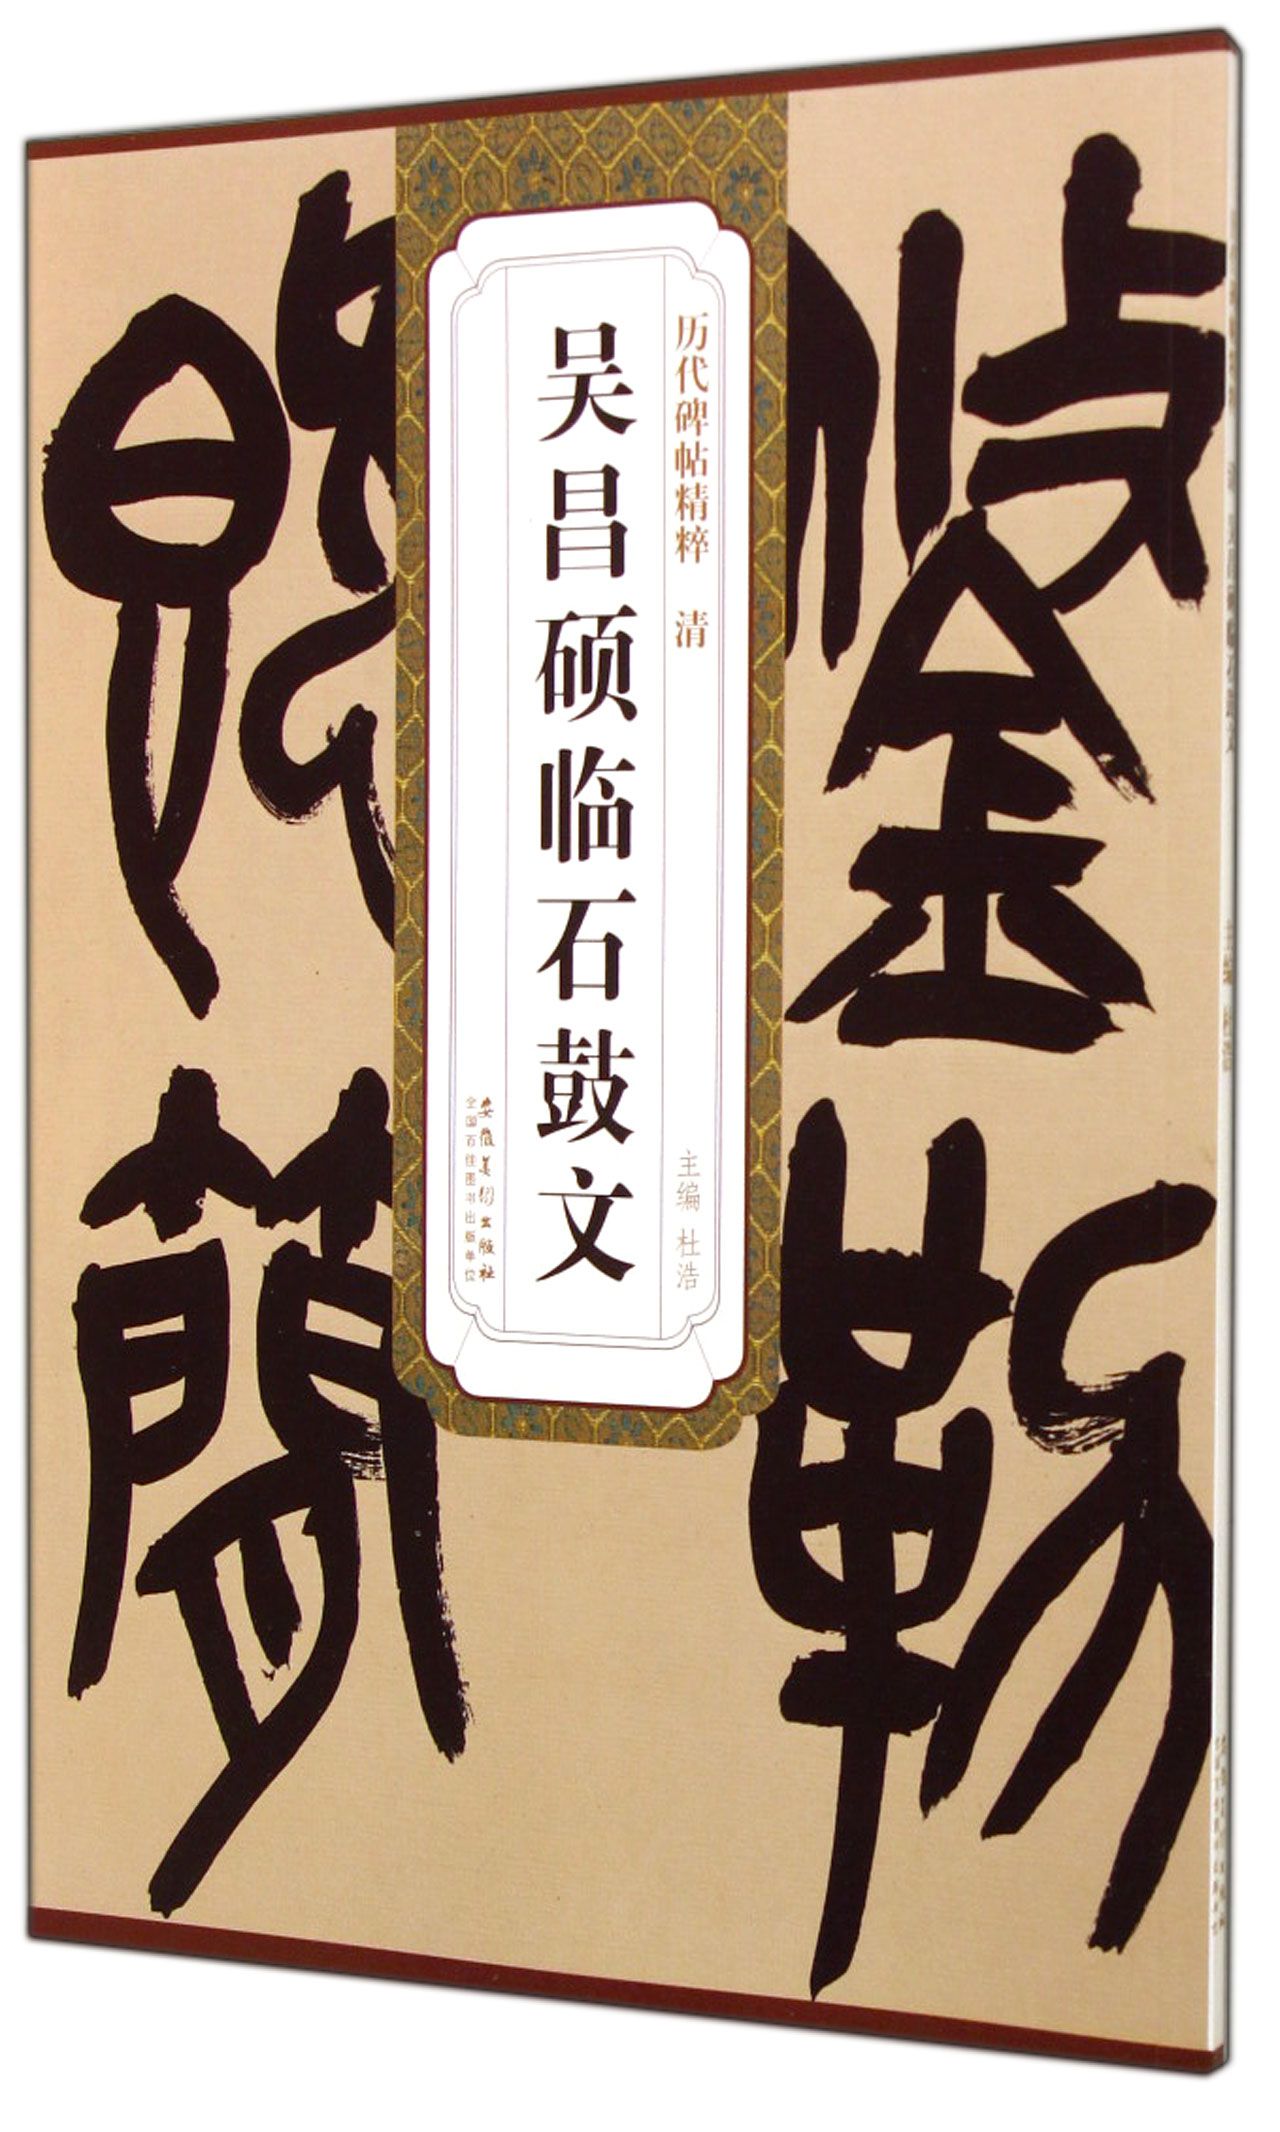 历代碑帖精粹 清
吴昌硕临石鼓文
主编 杜浩
安徽美术出版社
全国百佳图书出版单位
鋚勒